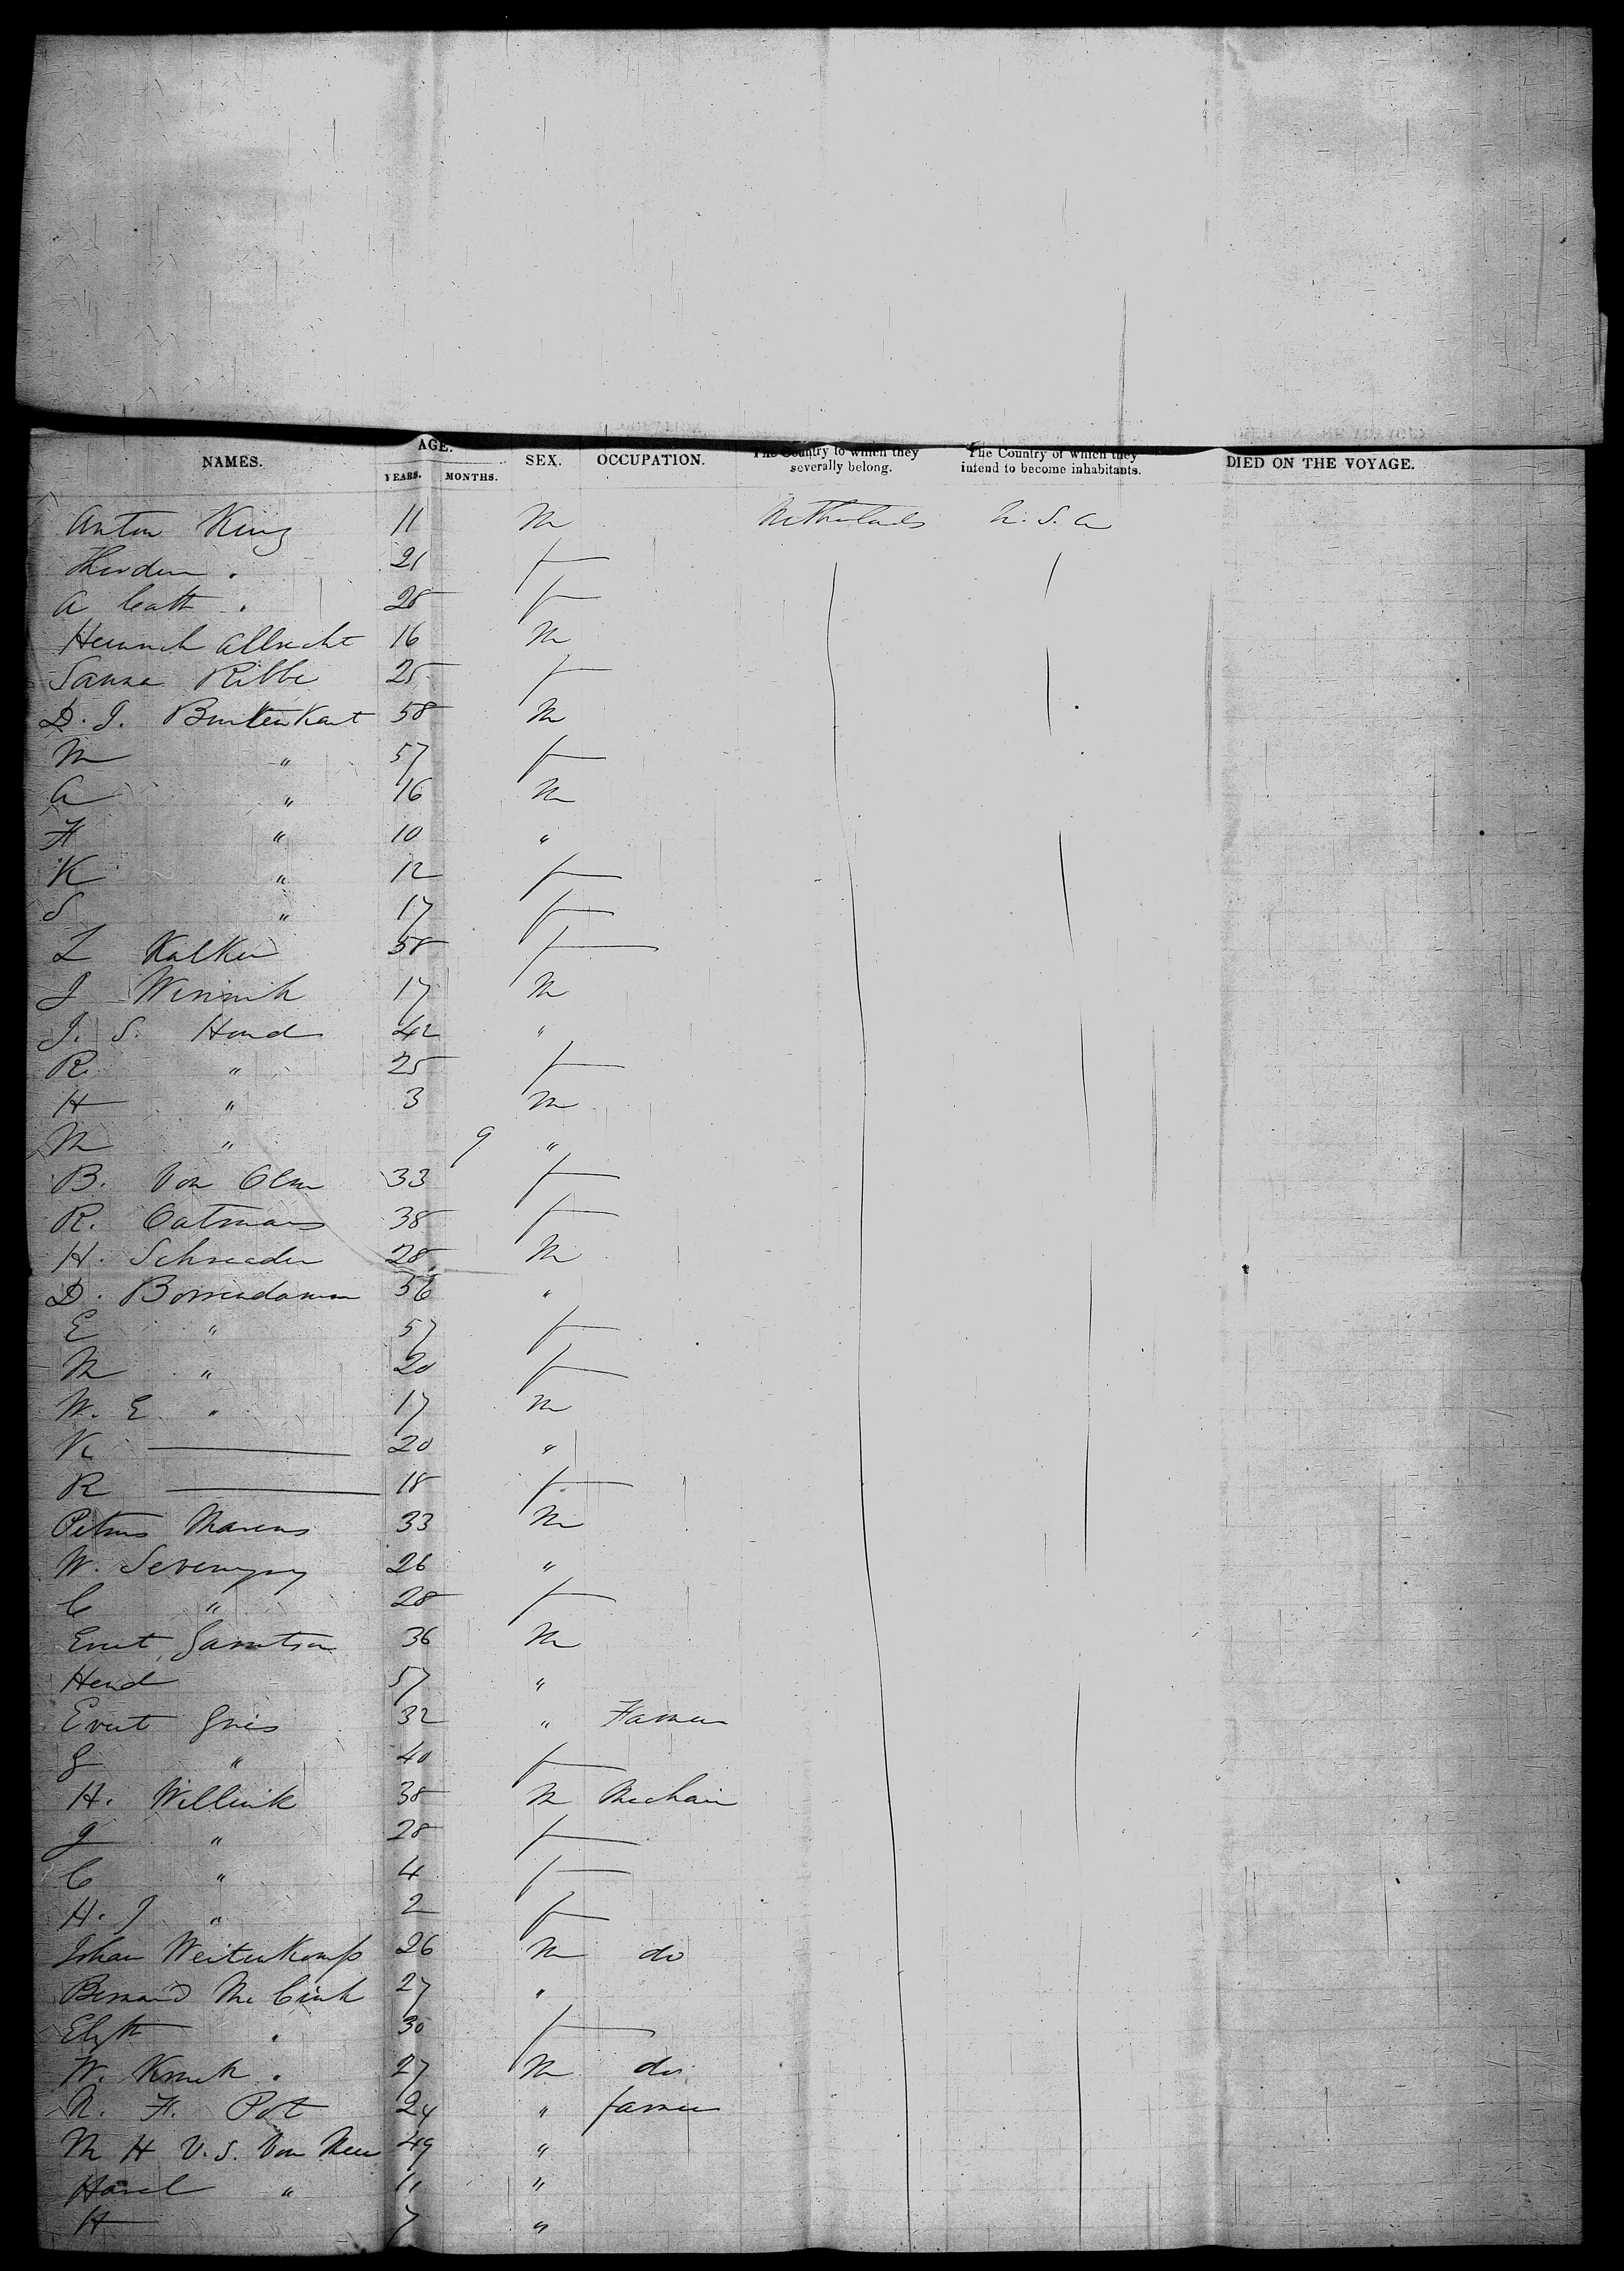 NAMES. AGE. YEARS. MONTHS. SEX. OCCUPATION. The Country to which they severally belong. The Country of which they intend to become inhabitants. DIED ON THE VOYAGE.
Anton King 11 M Netherlands U. S. A
" 21 f
A Cath " 28 f
Heinrich Albrecht 16 M
Sanna Ribbe 25 f
D. J. 58 M
M " 57 f
A " 16 M
H " 10 "
K " 12 f
S " 17 f
Z Kalker 58 f
J Wissink 17 M
J. S. Hond 42 "
R " 25 f
H " 3 M
M " 9 "
B. Von Olm 33 f
R. Oatmans 38 f
H. Schraader 28 M
D. Borrendamm 56 "
E " 57 f
M " 20 f
W. E " 17 M
K 20 "
R 18 f
Petrus Marens 33 M
W. 26 "
C " 28 f
Evert Garretson 36 M
Hend 57 "
Evert Gries 32 " Farmer
G " 40 f
H. Willink 38 M
G " 28 f
C " 4 f
H. J " 2 f
Johan Weitenkamp 26 M do
Bernard 27 "
Elzth " 30 f
W. 27 M do
N. H. Pot 24 " farmer
M H V. S. Von 49 "
" 11 "
H 7 "